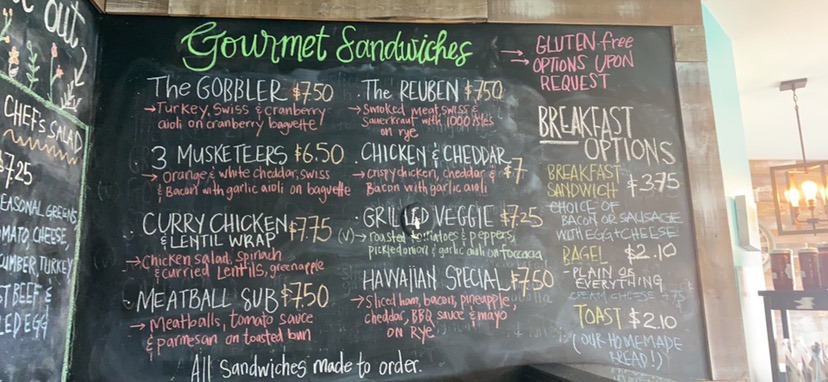 out
CHEF'S SALAD
$7.25
SEASONAL GREENS,
TOMATO, CHEESE,
CUMBER, TURKEY
&
Gourmet Sandwiches
→ GLUTEN-free
→ OPTIONS UPON
REQUEST
The GOBBLER $7.50
→ Turkey, Swiss & cranberry
aioli on cranberry baguette
3 MUSKETEERS $6.50
→ orange & white cheddar, swiss
& Bacon with garlic aioli on baguette
CURRY CHICKEN $7.75
& LENTIL WRAP
→ Chicken salad, spinach
& curried lentils, green apple
MEATBALL SUB $7.50
→ Meatballs, tomato sauce
& parmesan on toasted bun
The REUBEN $7.50
→ smoked meat, swiss &
sauerkraut with 1000 isles
on rye
CHICKEN & CHEDDAR $7
→ crispy chicken, cheddar &
Bacon with garlic aioli
GRILLED VEGGIE $7.25
(V) → roasted tomatoes & peppers,
pickled onion & garlic aioli on foccacia
HAWAIIAN SPECIAL $7.50
→ Sliced ham, bacon, pineapple,
cheddar, BBQ sauce & mayo
on Rye
All sandwiches made to order.
BREAKFAST
OPTIONS
BREAKFAST
SANDWICH $3.75
CHOICE OF
BACON OR SAUSAGE
WITH EGG & CHEESE
BAGEL $2.10
- PLAIN OR
EVERYTHING
CREAM CHEESE
TOAST $2.10
(OUR HOMEMADE
BREAD!)